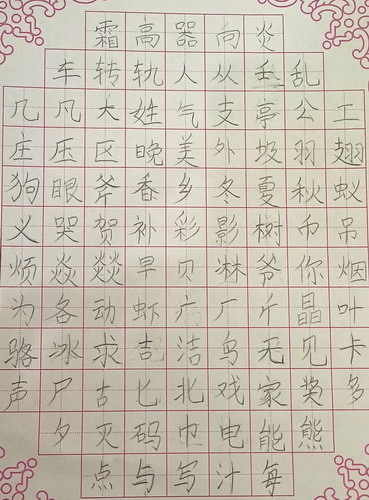 霜高器向炎
车转轨人从壬乱
几凡大姓气支亭公工
庄压区晚美外圾羽翅
狗眼斧香乡冬夏秋蚁
义哭贺补彩影树币吊
烦焱燚早贝淋爷你烟
为各动虾疒厂斤晶叶
骆冰求吉洁鸟无见卡
声尸古匕北戏家奖多
夕灭码电能熊
点与写汁每